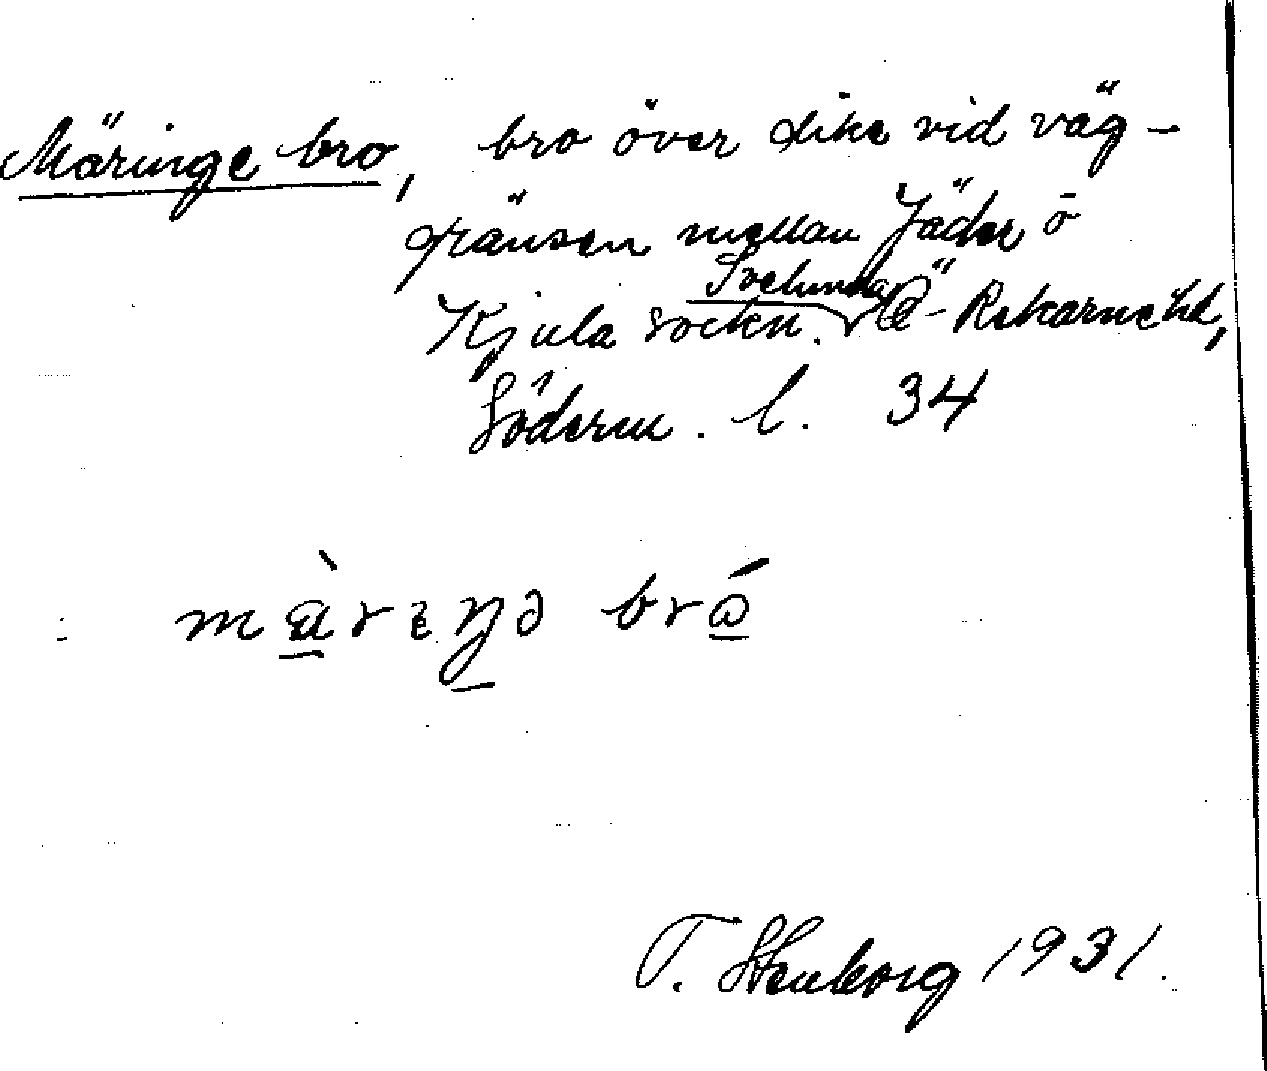 Märinge bro, bro över dike vid väg-
gränsen mellan Jäder o
Kjula sockn. Ö-Rekarne hd,
Söderm. l. 34
T. Stenborg 1931.